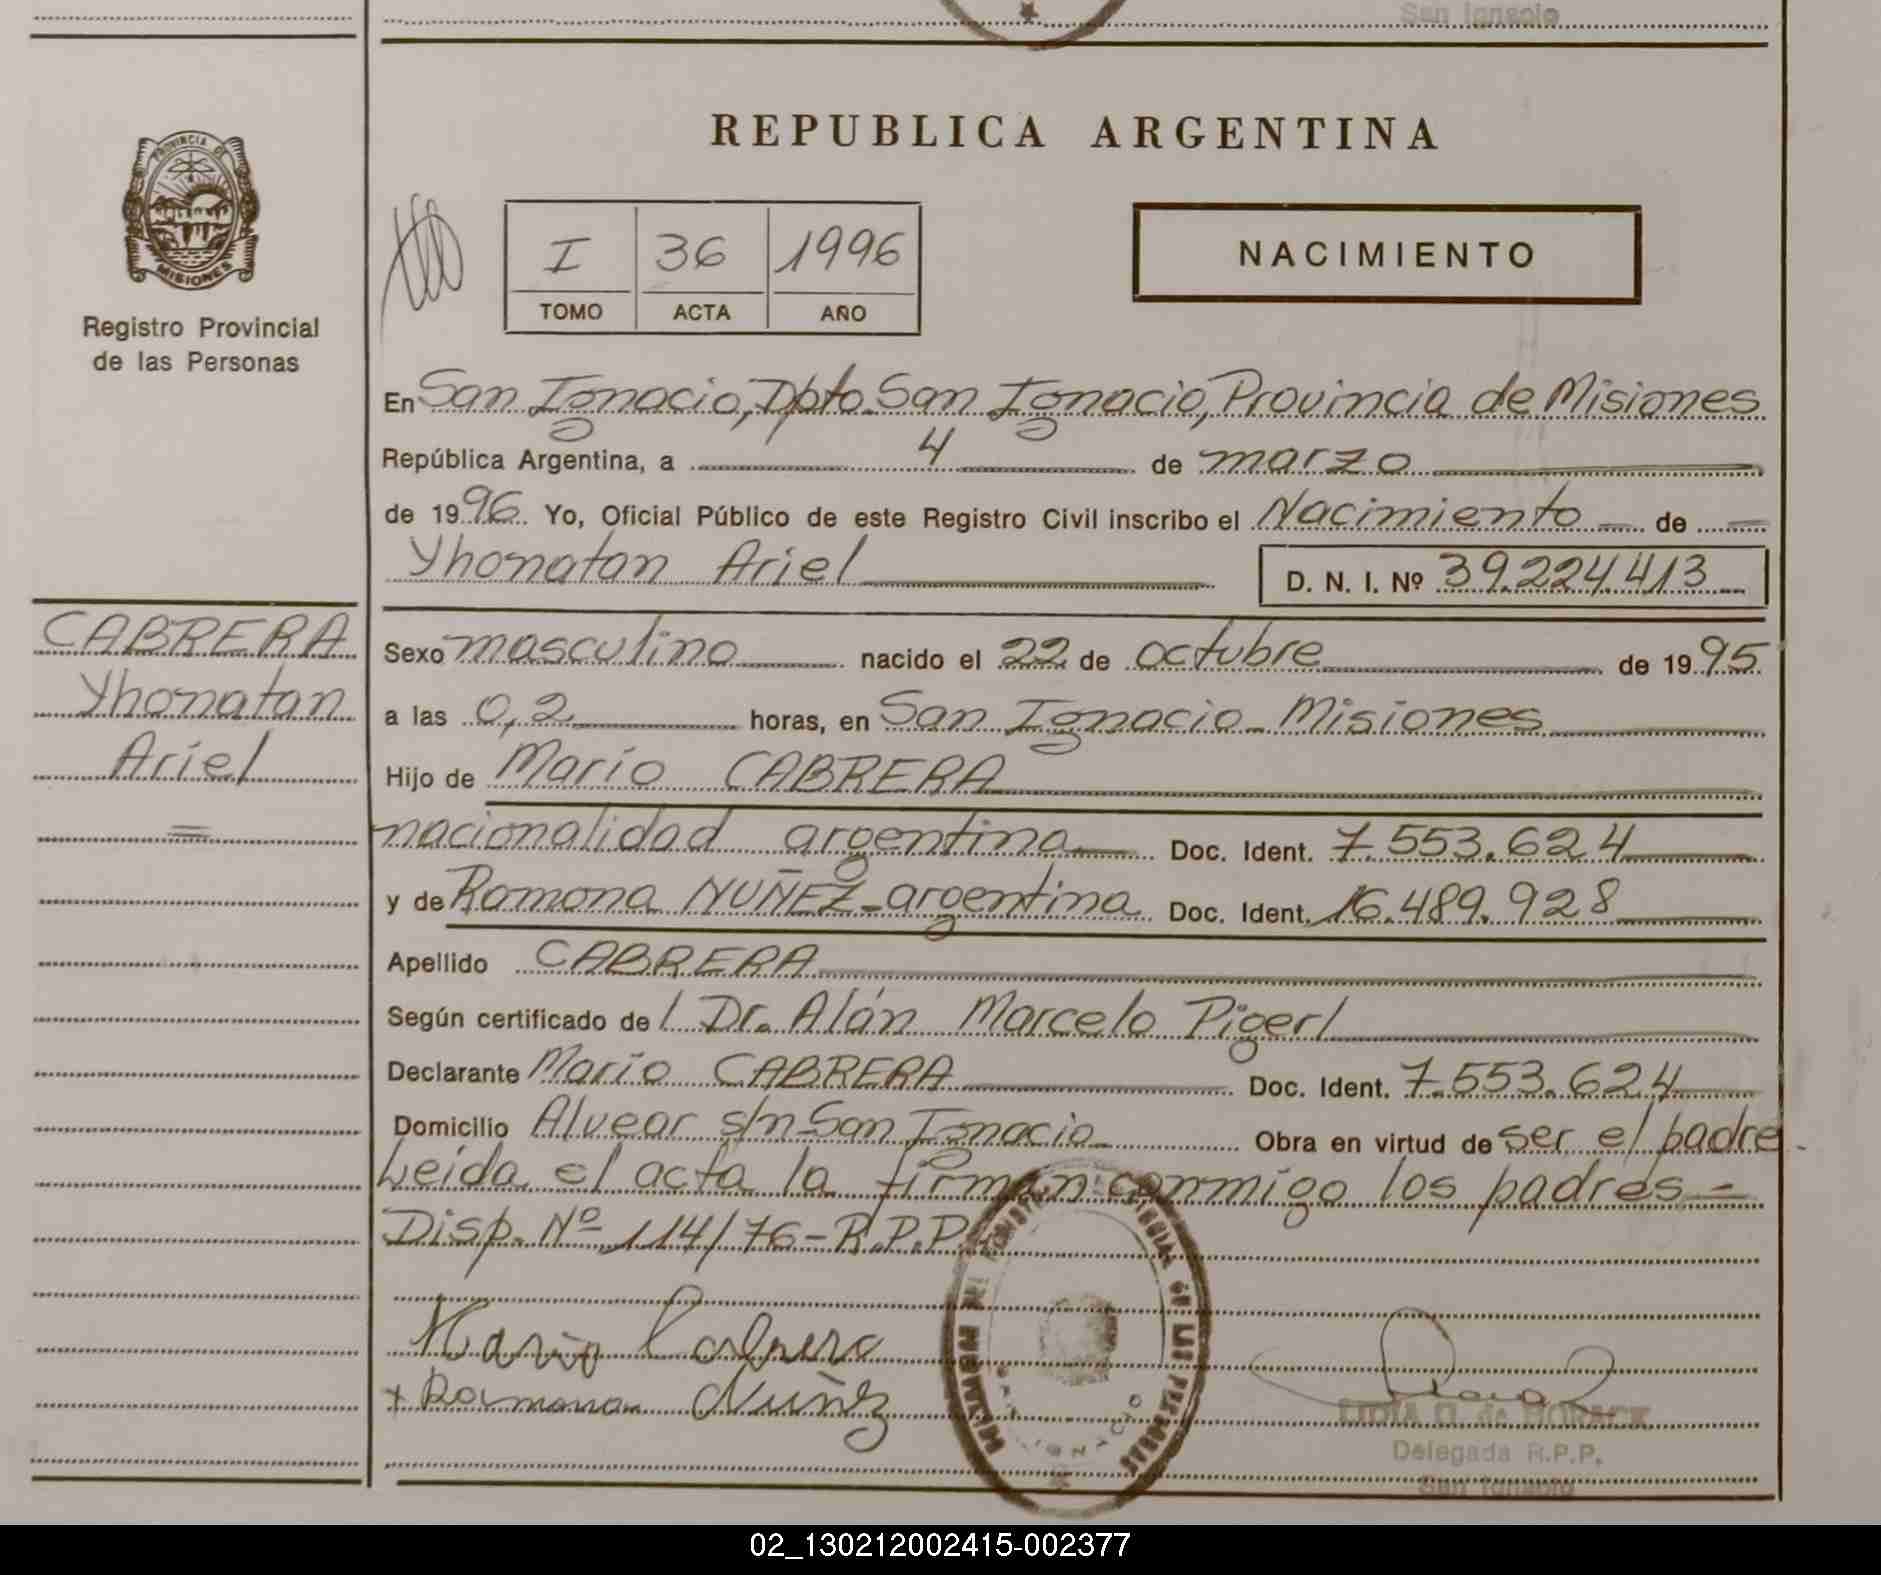 San Ignacio
REPUBLICA ARGENTINA
PROVINCIA DE
MISIONES
Registro Provincial
de las Personas
I 36 1996
TOMO ACTA AÑO
NACIMIENTO
En San Ignacio, Dpto. San Ignacio, Provincia de Misiones
República Argentina, a 4 de marzo
de 1996. Yo, Oficial Público de este Registro Civil inscribo el Nacimiento de
Yhonatan Ariel D. N. I. Nº 39.224.413
CABRERA
Yhonatan
Ariel
Sexo masculino nacido el 22 de octubre de 1995
a las 0,2 horas, en San Ignacio - Misiones
Hijo de Mario CABRERA
nacionalidad argentina Doc. Ident. 7.553.624
y de Ramona NUÑEZ - argentina Doc. Ident. 16.489.928
Apellido CABRERA
Según certificado de l Dr. Alán Marcelo Pigerl
Declarante Mario CABRERA Doc. Ident. 7.553.624
Domicilio Alvear s/n San Ignacio Obra en virtud de ser el padre
Leida el acta la firman conmigo los padres -
Disp. Nº 114/76 - R.P.P.
Mario Cabrera
+ Ramona Nuñez
LIDIA O. de HORACK
Delegada R.P.P.
San Ignacio
02_130212002415-002377